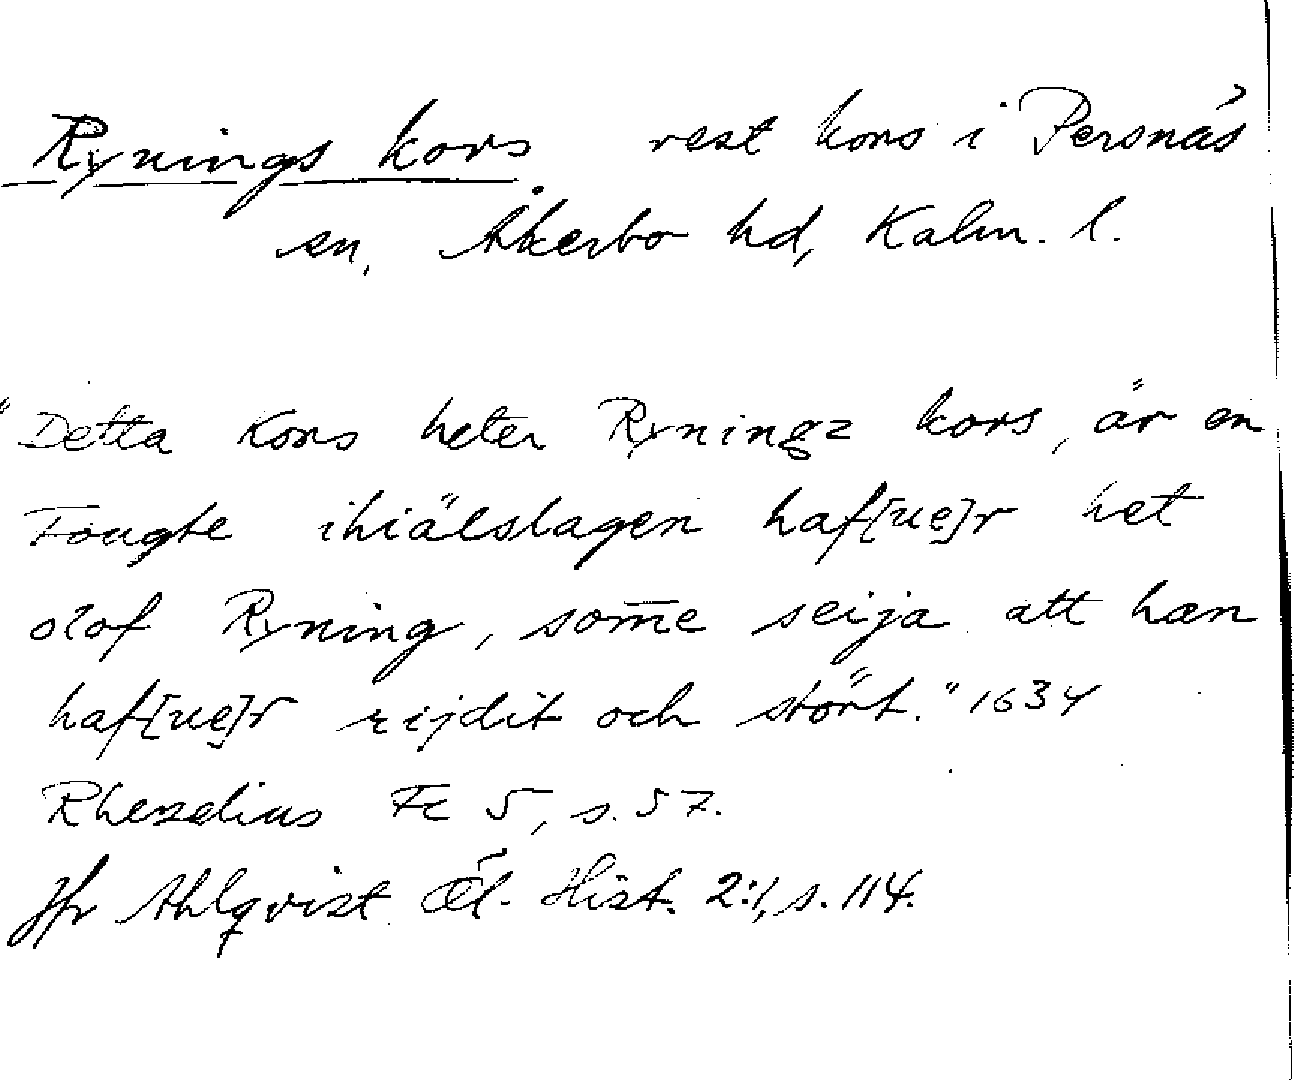 Rynings kors rest kors i Persnäs
sn, Åkerbo hd, Kalm. l.
"Detta Kors heter Ryningz kors, är en
Fougte ihiälslagen haf[ue]r het
olof Ryning, som̅e seija att han
haf[ue]r rijdit och stört." 1634
Rhezelius Fc 5, s. 57.
Jfr Ahlqvist Öl. Hist. 2:1, s. 114.